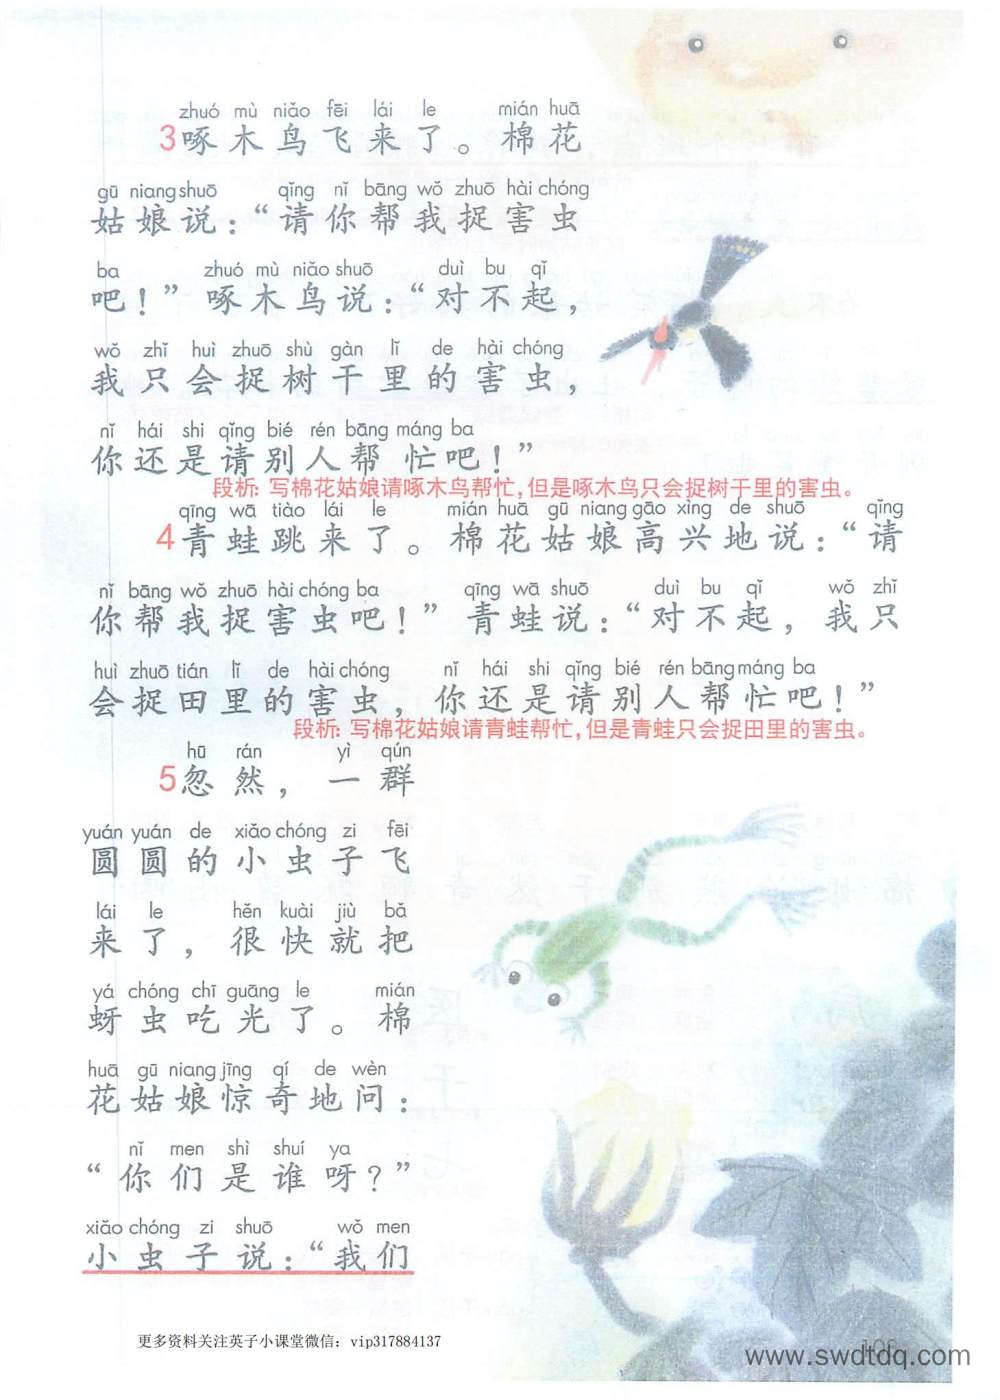 zhuó mù niǎo fēi lái le mián huā
3啄木鸟飞来了。棉花
gū niang shuō qǐng nǐ bāng wǒ zhuō hài chóng
姑娘说：“请你帮我捉害虫
ba zhuó mù niǎo shuō duì bu qǐ
吧！”啄木鸟说：“对不起，
wǒ zhǐ huì zhuō shù gàn lǐ de hài chóng
我只会捉树干里的害虫，
nǐ hái shi qǐng bié rén bāng máng ba
你还是请别人帮忙吧！”
段析：写棉花姑娘请啄木鸟帮忙，但是啄木鸟只会捉树干里的害虫。
qīng wā tiào lái le mián huā gū niang gāo xìng de shuō qǐng
4青蛙跳来了。棉花姑娘高兴地说：“请
nǐ bāng wǒ zhuō hài chóng ba qīng wā shuō duì bu qǐ wǒ zhǐ
你帮我捉害虫吧！”青蛙说：“对不起，我只
huì zhuō tián lǐ de hài chóng nǐ hái shi qǐng bié rén bāng máng ba
会捉田里的害虫，你还是请别人帮忙吧！”
段析：写棉花姑娘请青蛙帮忙，但是青蛙只会捉田里的害虫。
hū rán yì qún
5忽然，一群
yuán yuán de xiǎo chóng zi fēi
圆圆的小虫子飞
lái le hěn kuài jiù bǎ
来了，很快就把
yá chóng chī guāng le mián
蚜虫吃光了。棉
huā gū niang jīng qí de wèn
花姑娘惊奇地问：
nǐ men shì shuí ya
“你们是谁呀？”
xiǎo chóng zi shuō wǒ men
小虫子说：“我们
更多资料关注英子小课堂微信：vip317884137
www.swdtdq.com